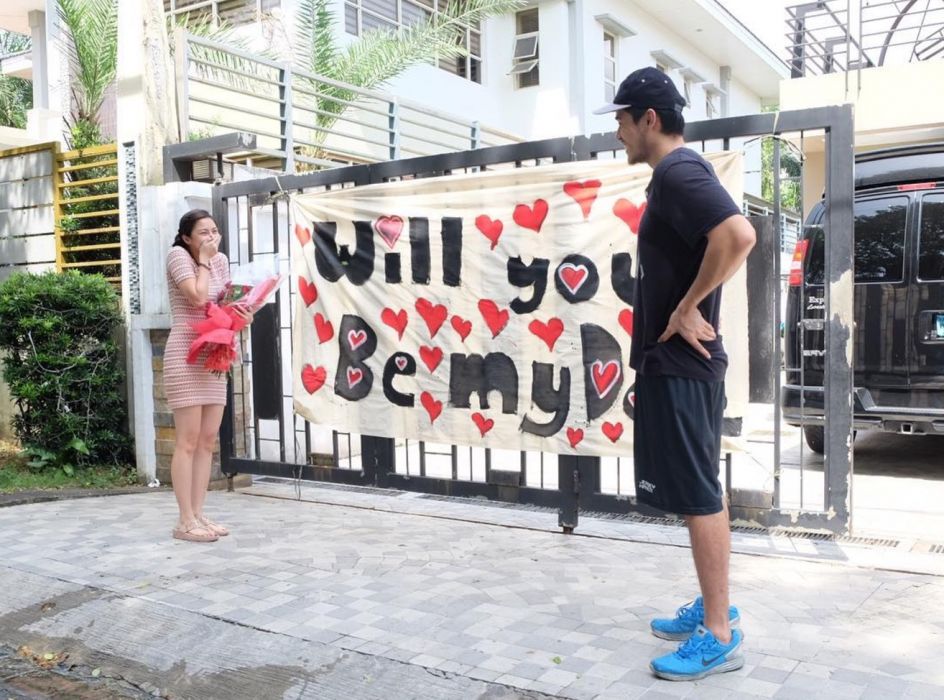 Will you
Be my